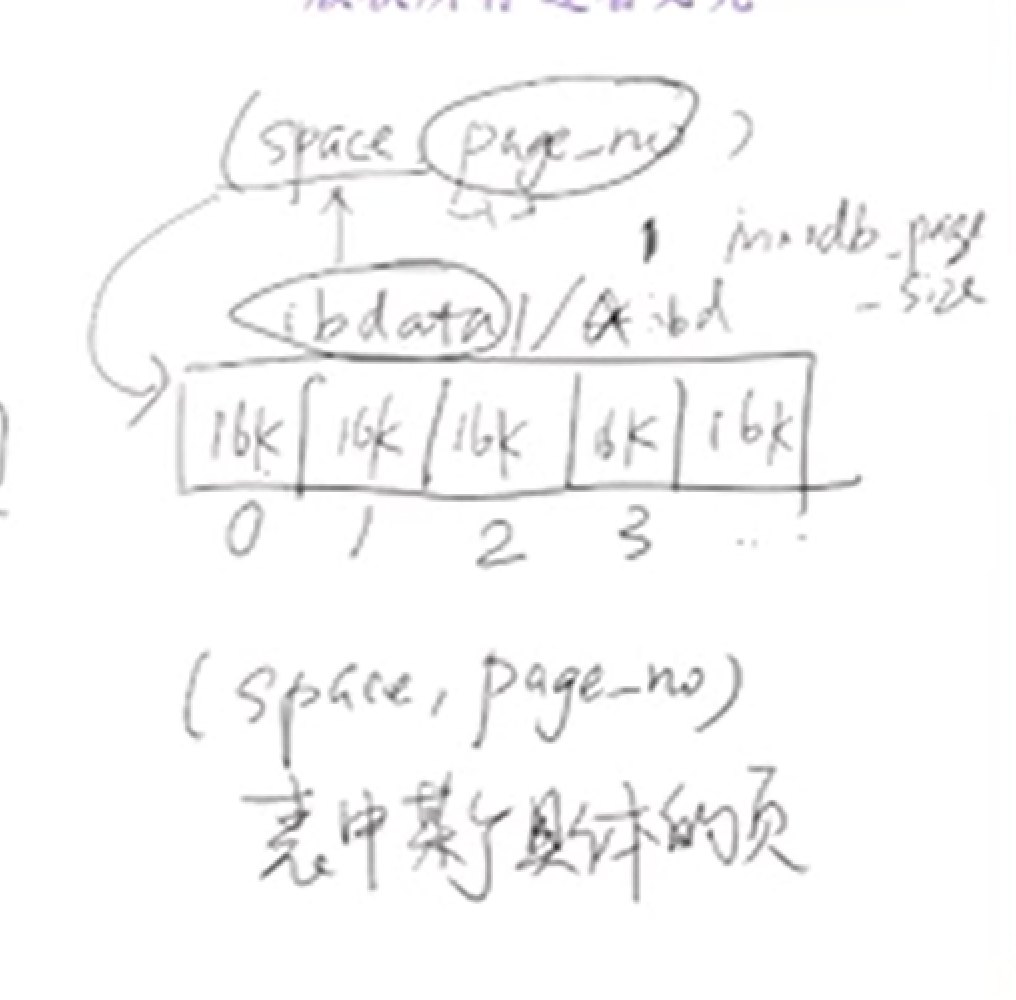 (space, page_no)
innodb_page
_size
ibdata1/ .ibd
16k 16k 16k 16k 16k
0 1 2 3 ...
(space, page_no)
表中某个具体的页